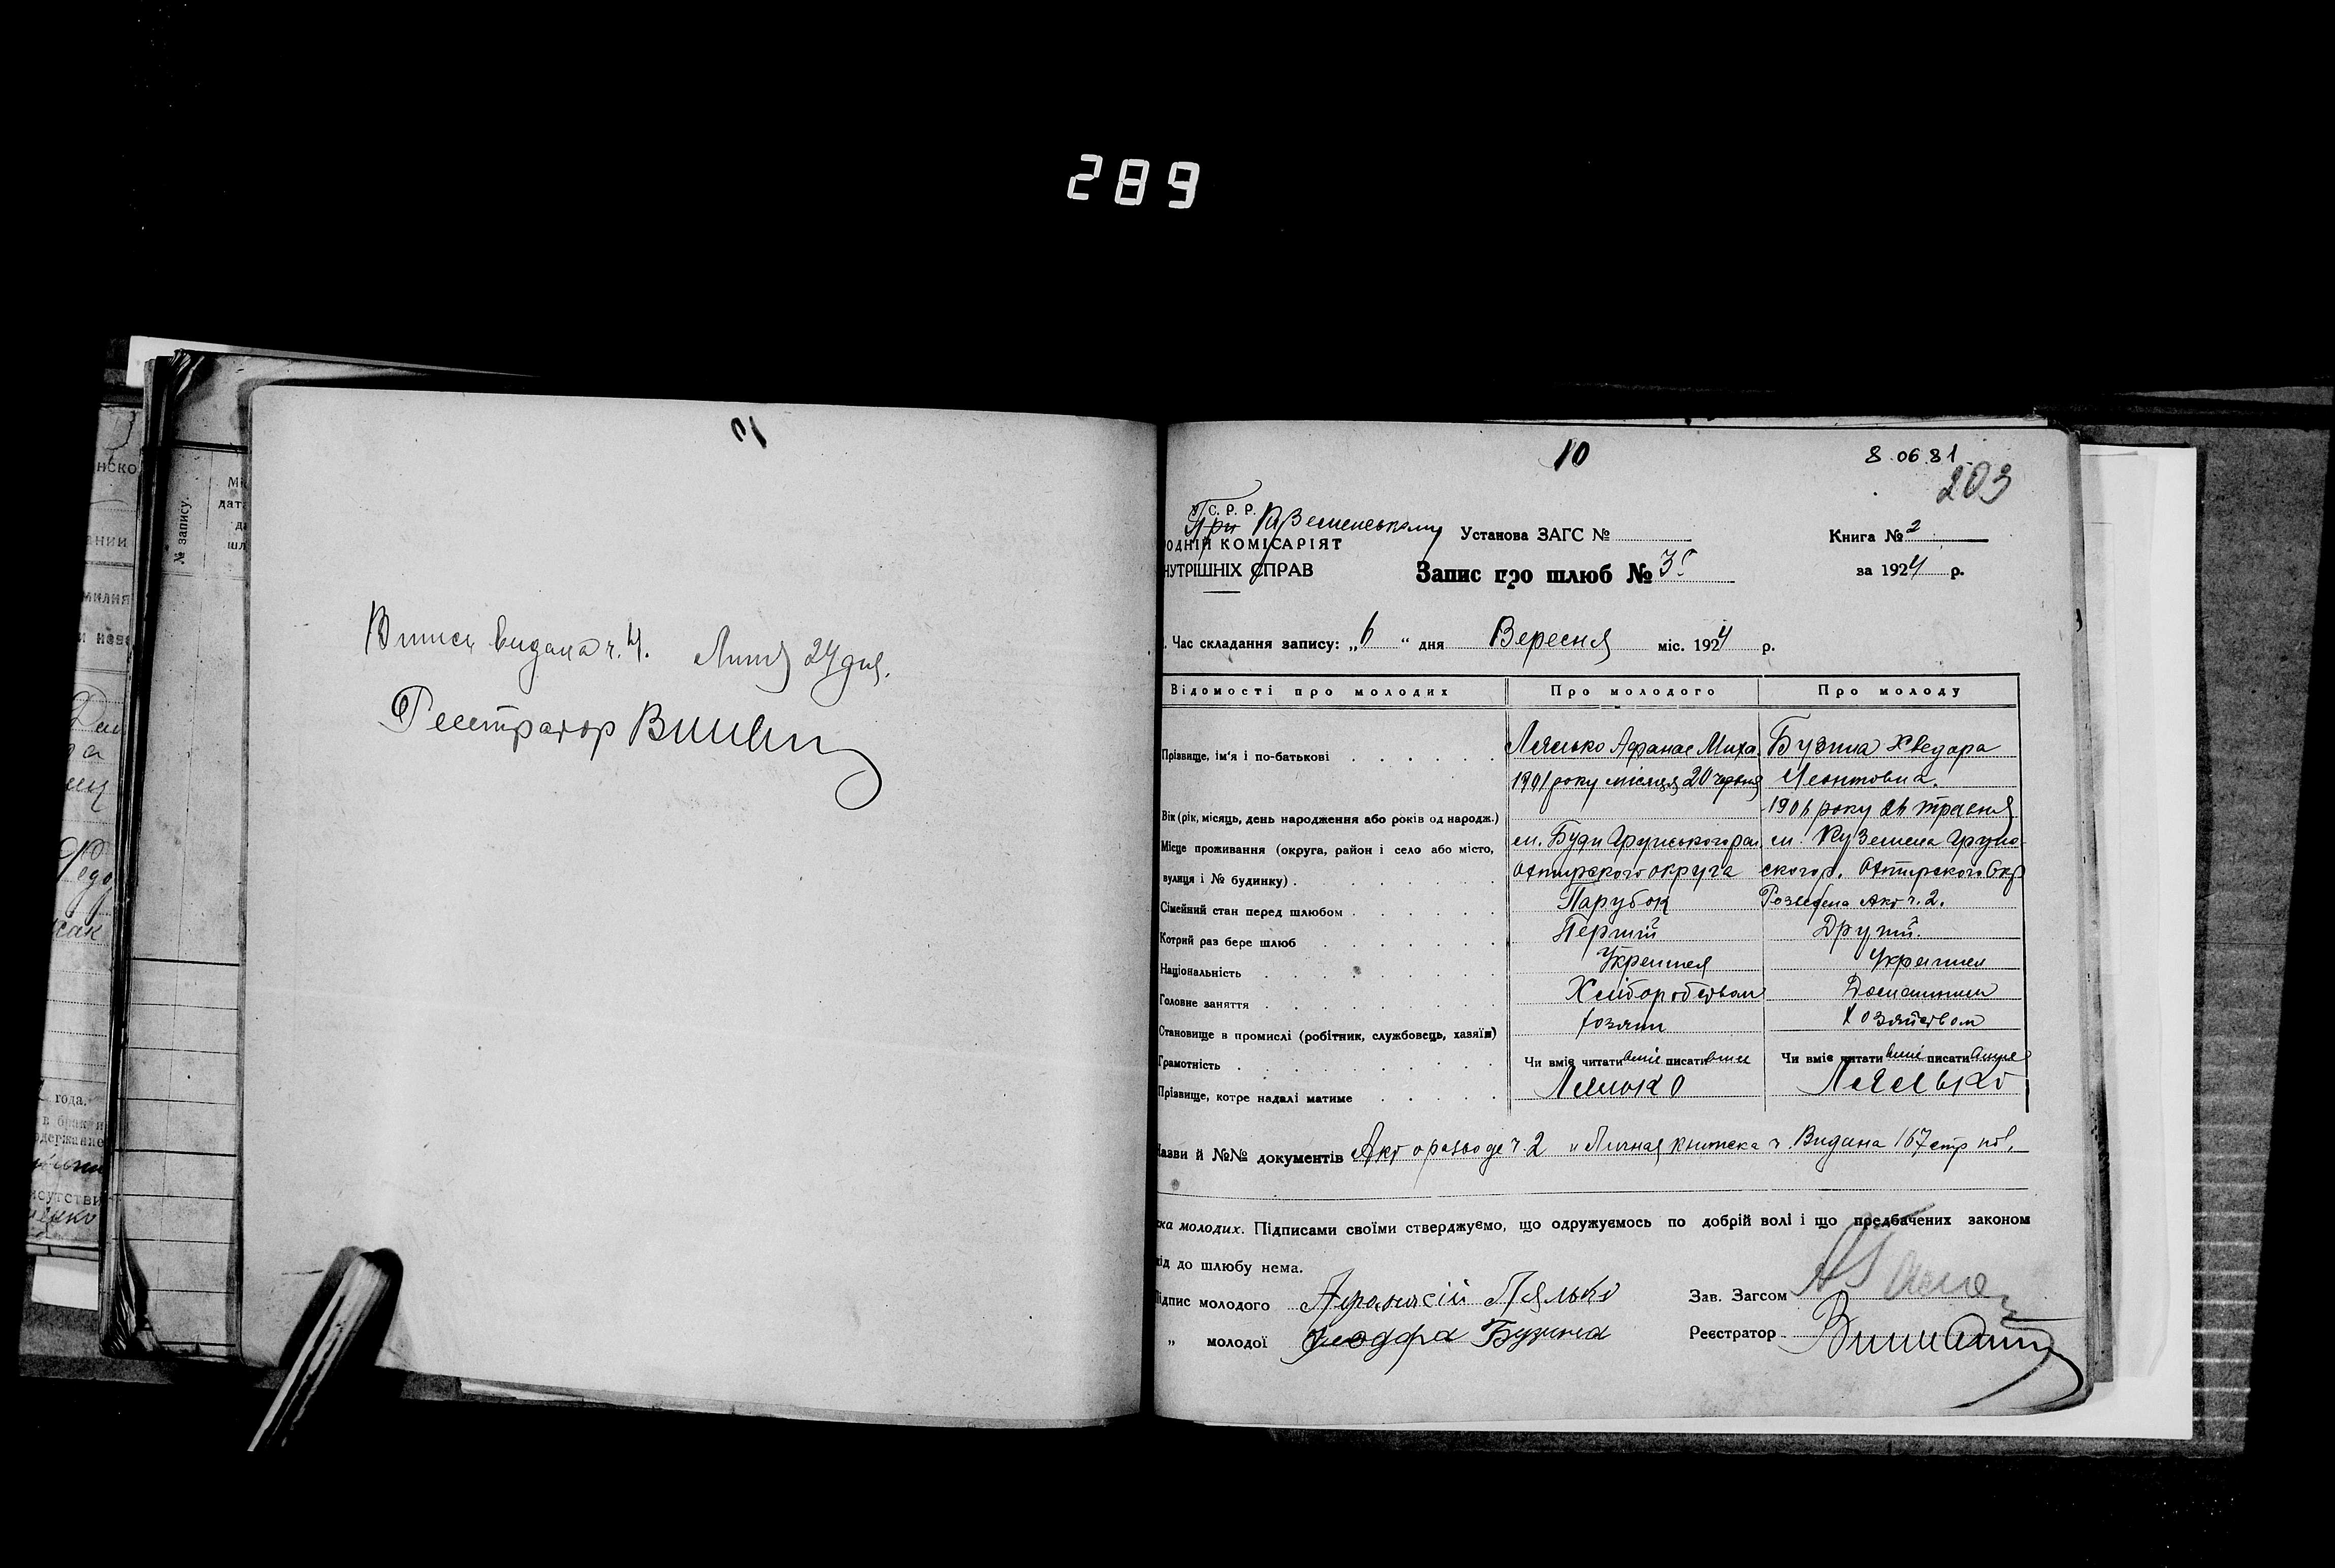 289
№ запису.
года.
Випись видана ч. 4. Липня 24 дня.
Реестратор
10
8.06.81
203
У. С. Р. Р.
При Куземенському
ОДНІЙ КОМІСАРІЯТ
НУТРІШНІХ СПРАВ
Установа ЗАГС №
Книга № 2
Запис про шлюб № 35
за 1924 р.
Час складання запису: „6“ дня Вересня міс. 1924 р.
Відомості про молодих Про молодого Про молоду
Прізвище, ім'я і по-батькові Лялько Афанас Миха. Бузина Хведора
1901 року місяця 20 червня Леонтовна.
Вік (рік, місяць, день народження або років од народж.) 1906 року 26 травня
Місце проживання (округа, район і село або місто, с. Буди Грунського рай. с. Куземена Грунь-
вулиця і № будинку) Охтирского округа ского р. Охтирского Окр
Сімейний стан перед шлюбом Парубок Розведена Акт ч. 2.
Котрий раз бере шлюб Перший Другий.
Національність Украінця Украінця
Головне заняття Хліборобством Домашним
Становище в промислі (робітник, службовець, хазяїн) хозяїн хозяйством
Грамотність Чи вміє читати вміє писати вміє Чи вміє читати вміє писати
Прізвище, котре надалі матиме Лялько Лялько
азви й №№ документів Акт о разводе ч. 2 и Личная книжка ч. Видана 167 стр
ка молодих. Підписами своїми стверджуємо, що одружуємось по добрій волі і що предбачених законом
ід до шлюбу нема.
ідпис молодого Афанасій Лялько Зав. Загсом
„ молодої Феодора Бузина Реєстратор